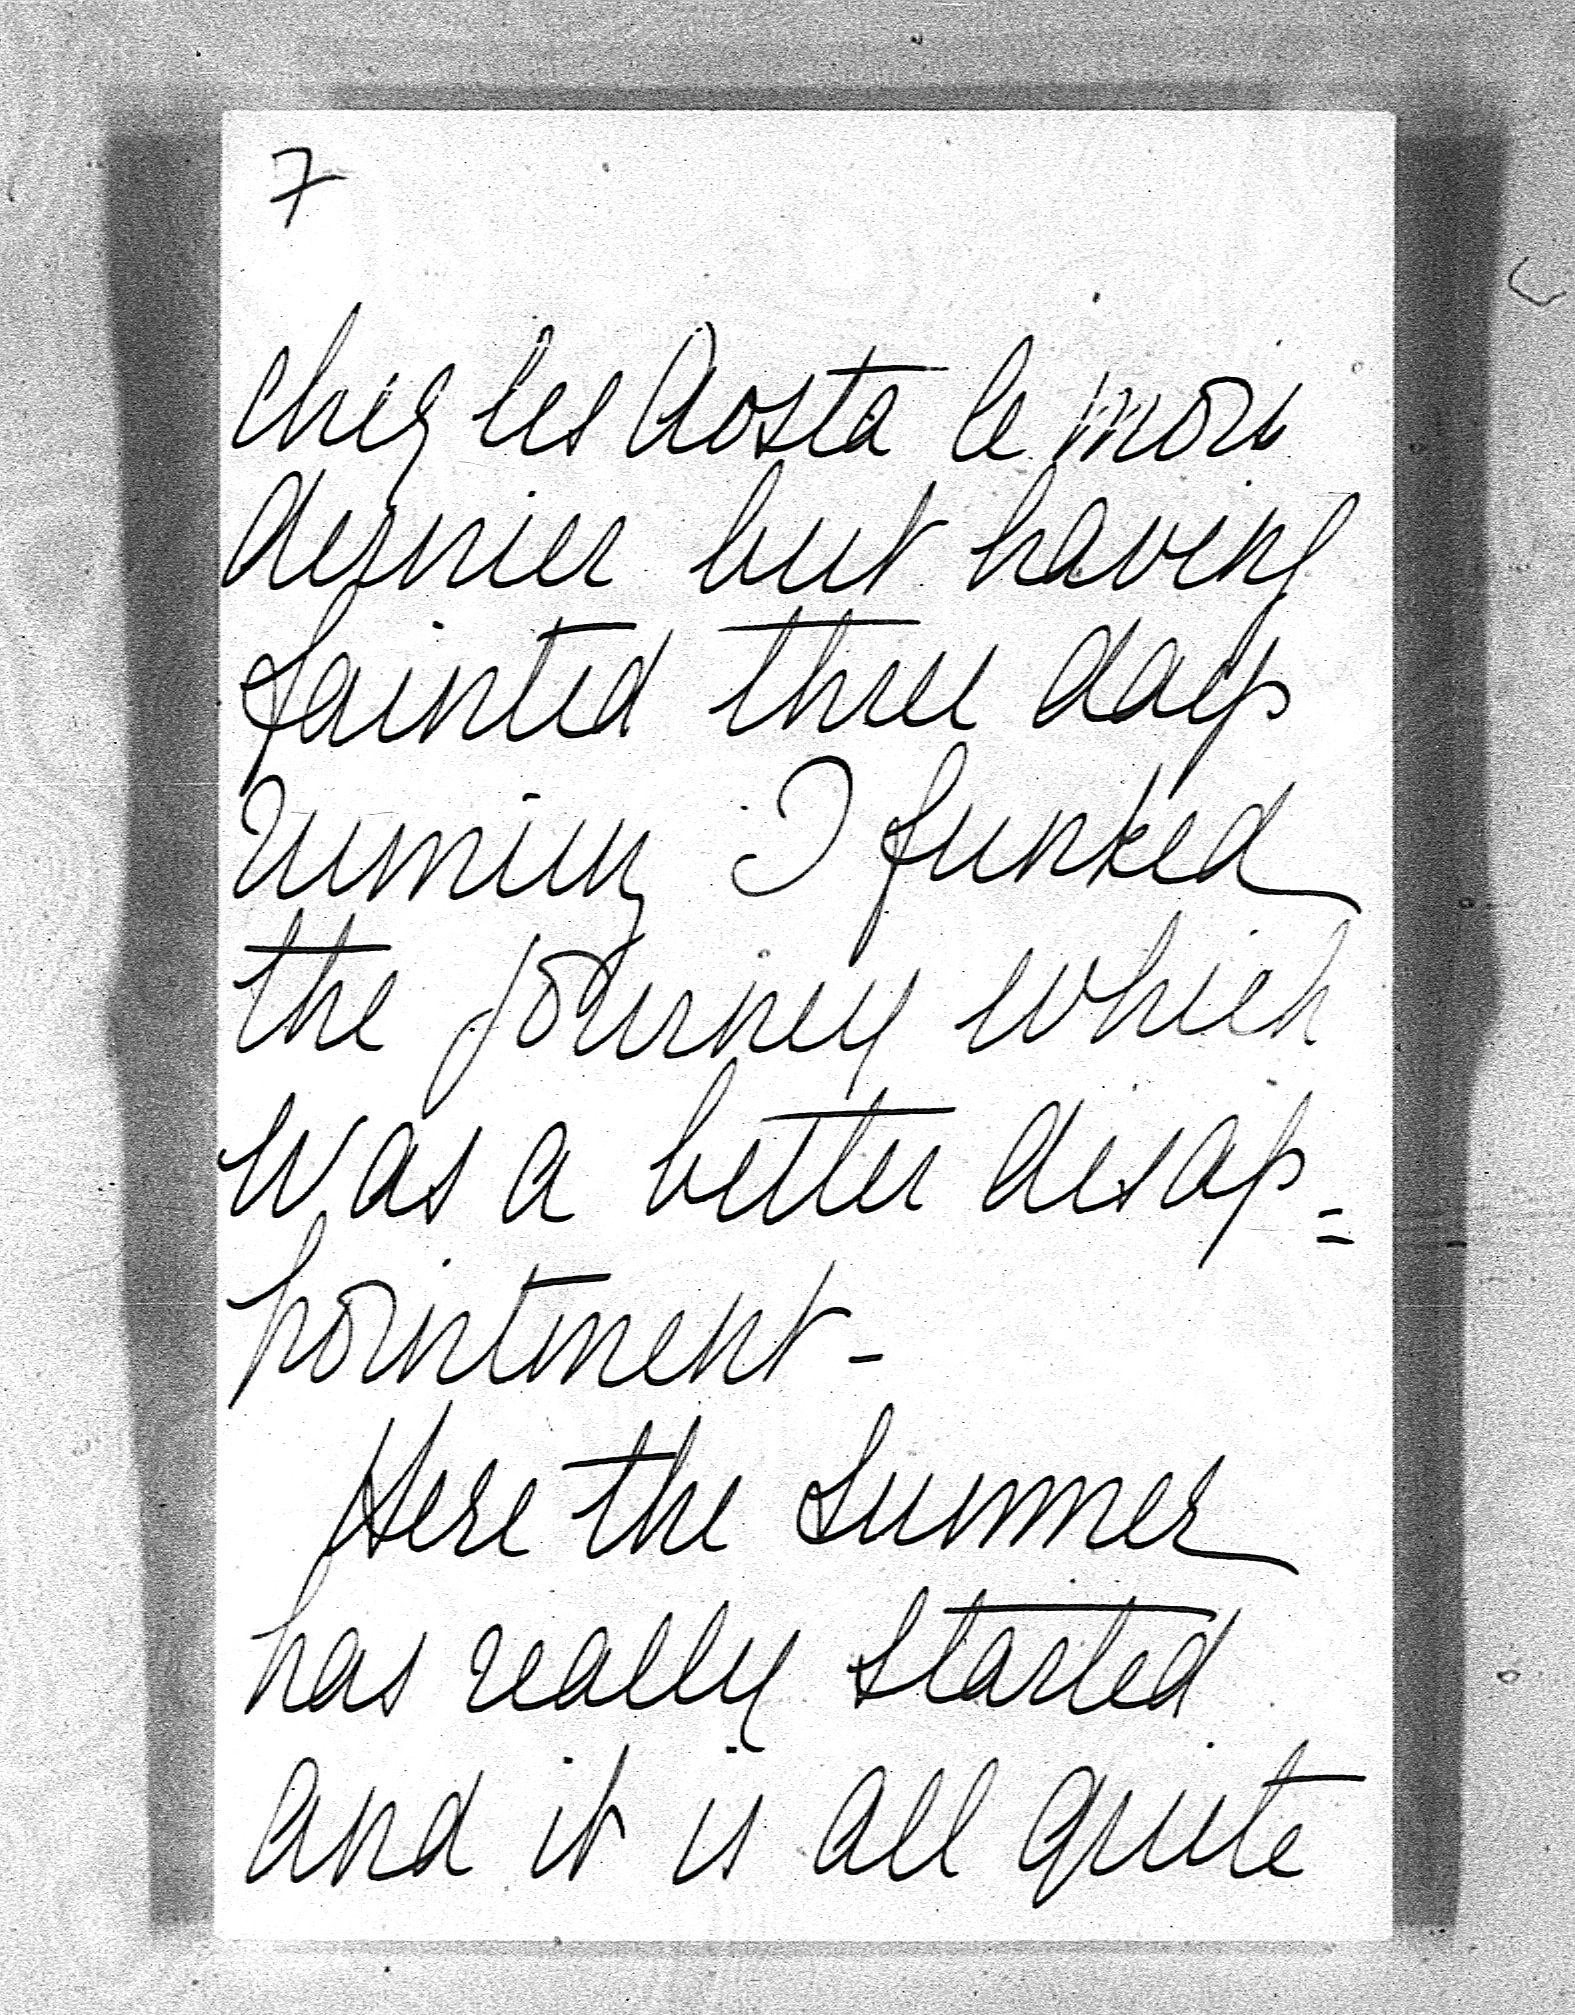 7
chez les Aosta le mois
dernier but having
fainted three days
running I funked
the journey which
was a bitter disap=
pointment -
Here the summer
has really started
and it is all quite